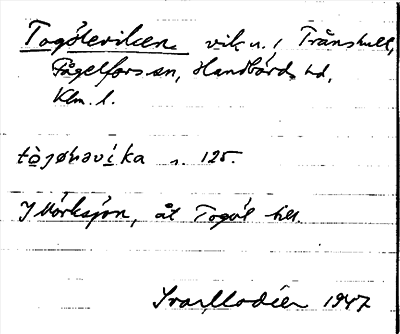 Togöleviken vik n. i Trånshult,
Fågelfors sn, Handbörds hd,
Klm. l.
tòjøhavika n. 125.
I Mörksjön, åt Togöl till.
Ivar Modéer 1947